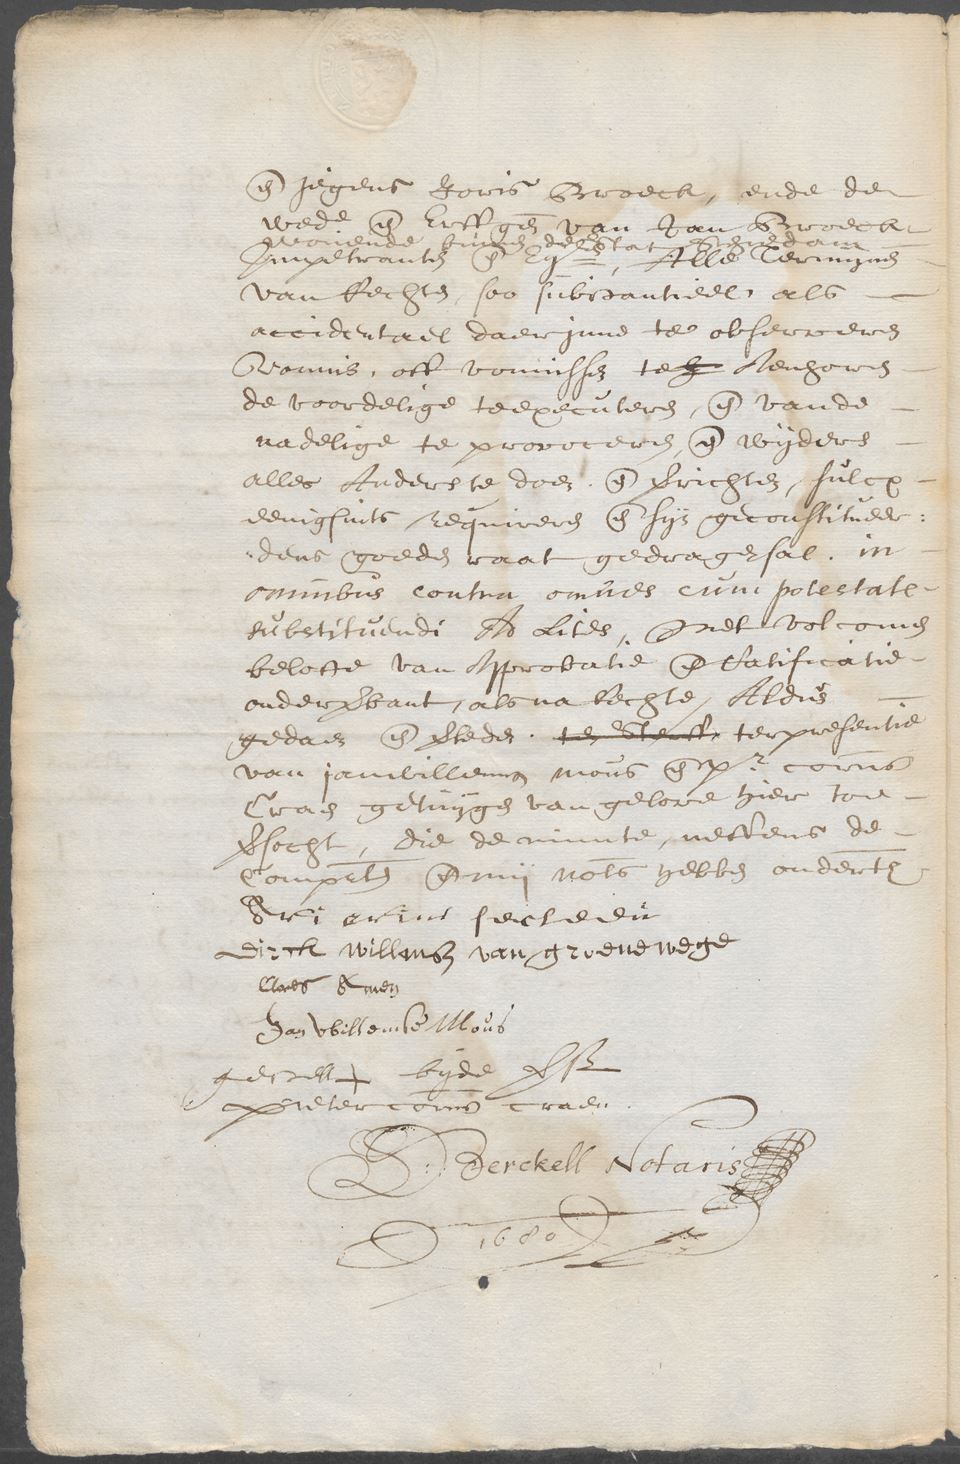 en jegens Joris Broeck, ende de
wede en Erffgen van Jan Broeck
wonende binnen de Stat Schiedam
Impetranten en Eyss, Alle Termijnen
van Rechten, soo substantieel als
accidentael daerinne te observeren
Vonnis, off vonnissen te Aenhoren
de voordelige te executeren, en vande
nadelige te provoceren, en wijders
alles Anders te doen en Verrichten, sulcx
eenigsints requireren en sijn geconstitueer:
dens goeden raat gedragen sal. in
omnibus contra omnes cum potestate
substituendi Ad Lites, Met volcomen
belofte van Approbatie en Ratificatie
onder verbant, als na Rechte, Aldus
gedaen en verleden te terpresentie
van jan willemsz mous en Pr. corns
Craen getuygen van gelove hier toe
versocht, die de minute, neffens de
Compten en mij nots hebben ondert
Dirck Willemsz van groenewege
Claes
Jan Willemse Mous
gestelt + bijde
Pieter corns craen
D: Derckell Notaris
1680